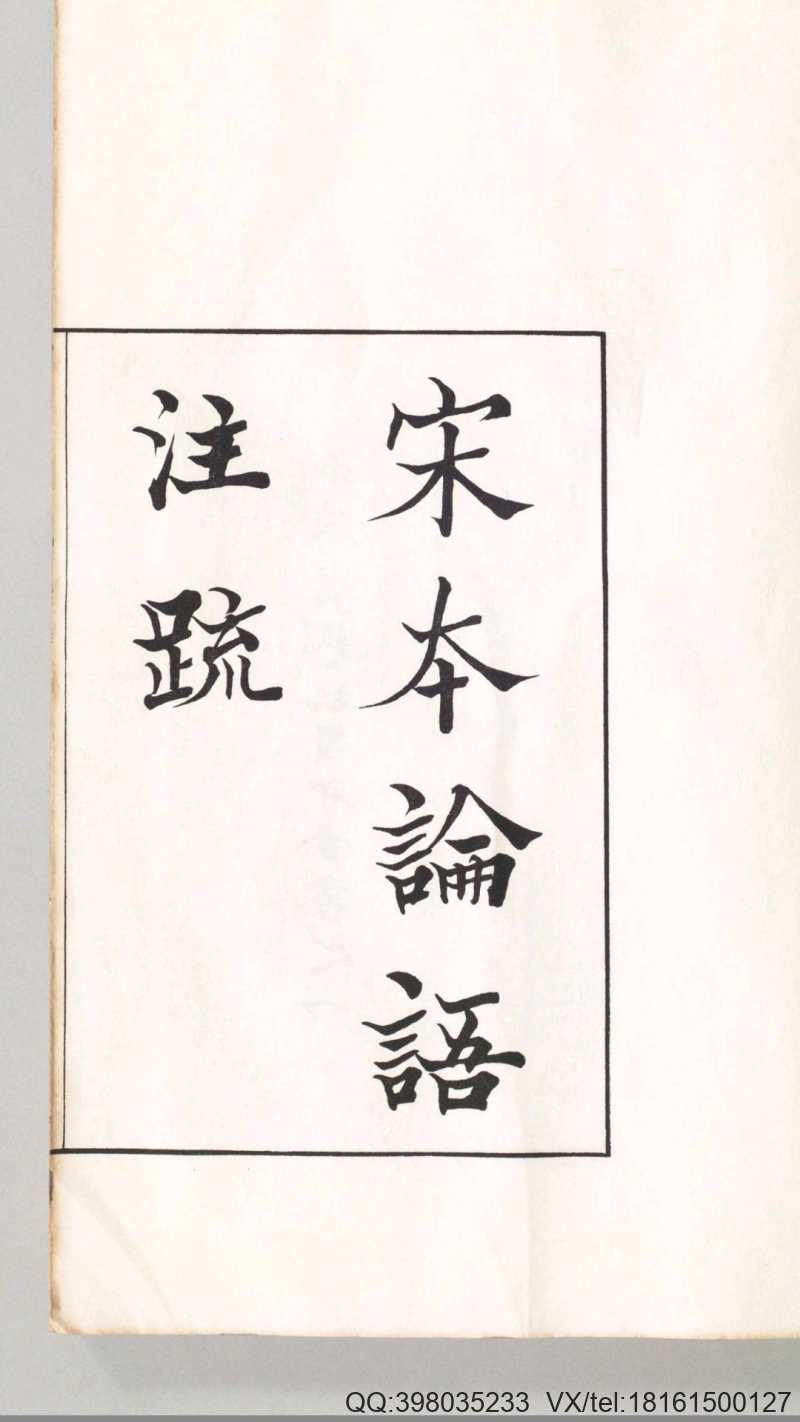 宋本論語
注䟽
QQ:398035233 VX/tel:18161500127